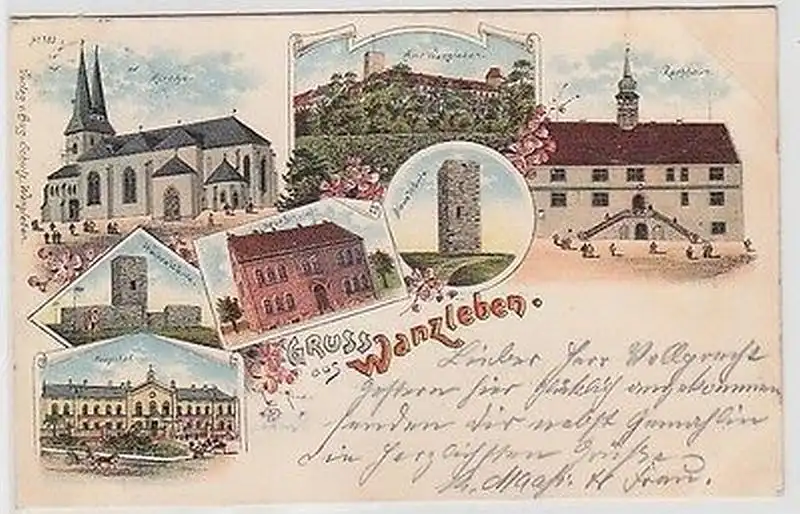 Kirche.
Amt Wanzleben.
Rathhaus.
Hospital.
GRUSS
aus Wanzleben.
Lieber Herr Vollpracht
Gestern hier glücklich angekommen
senden dir nebst Gemahlin
die herzlichsten Grüße
H. Maaß. u Frau.